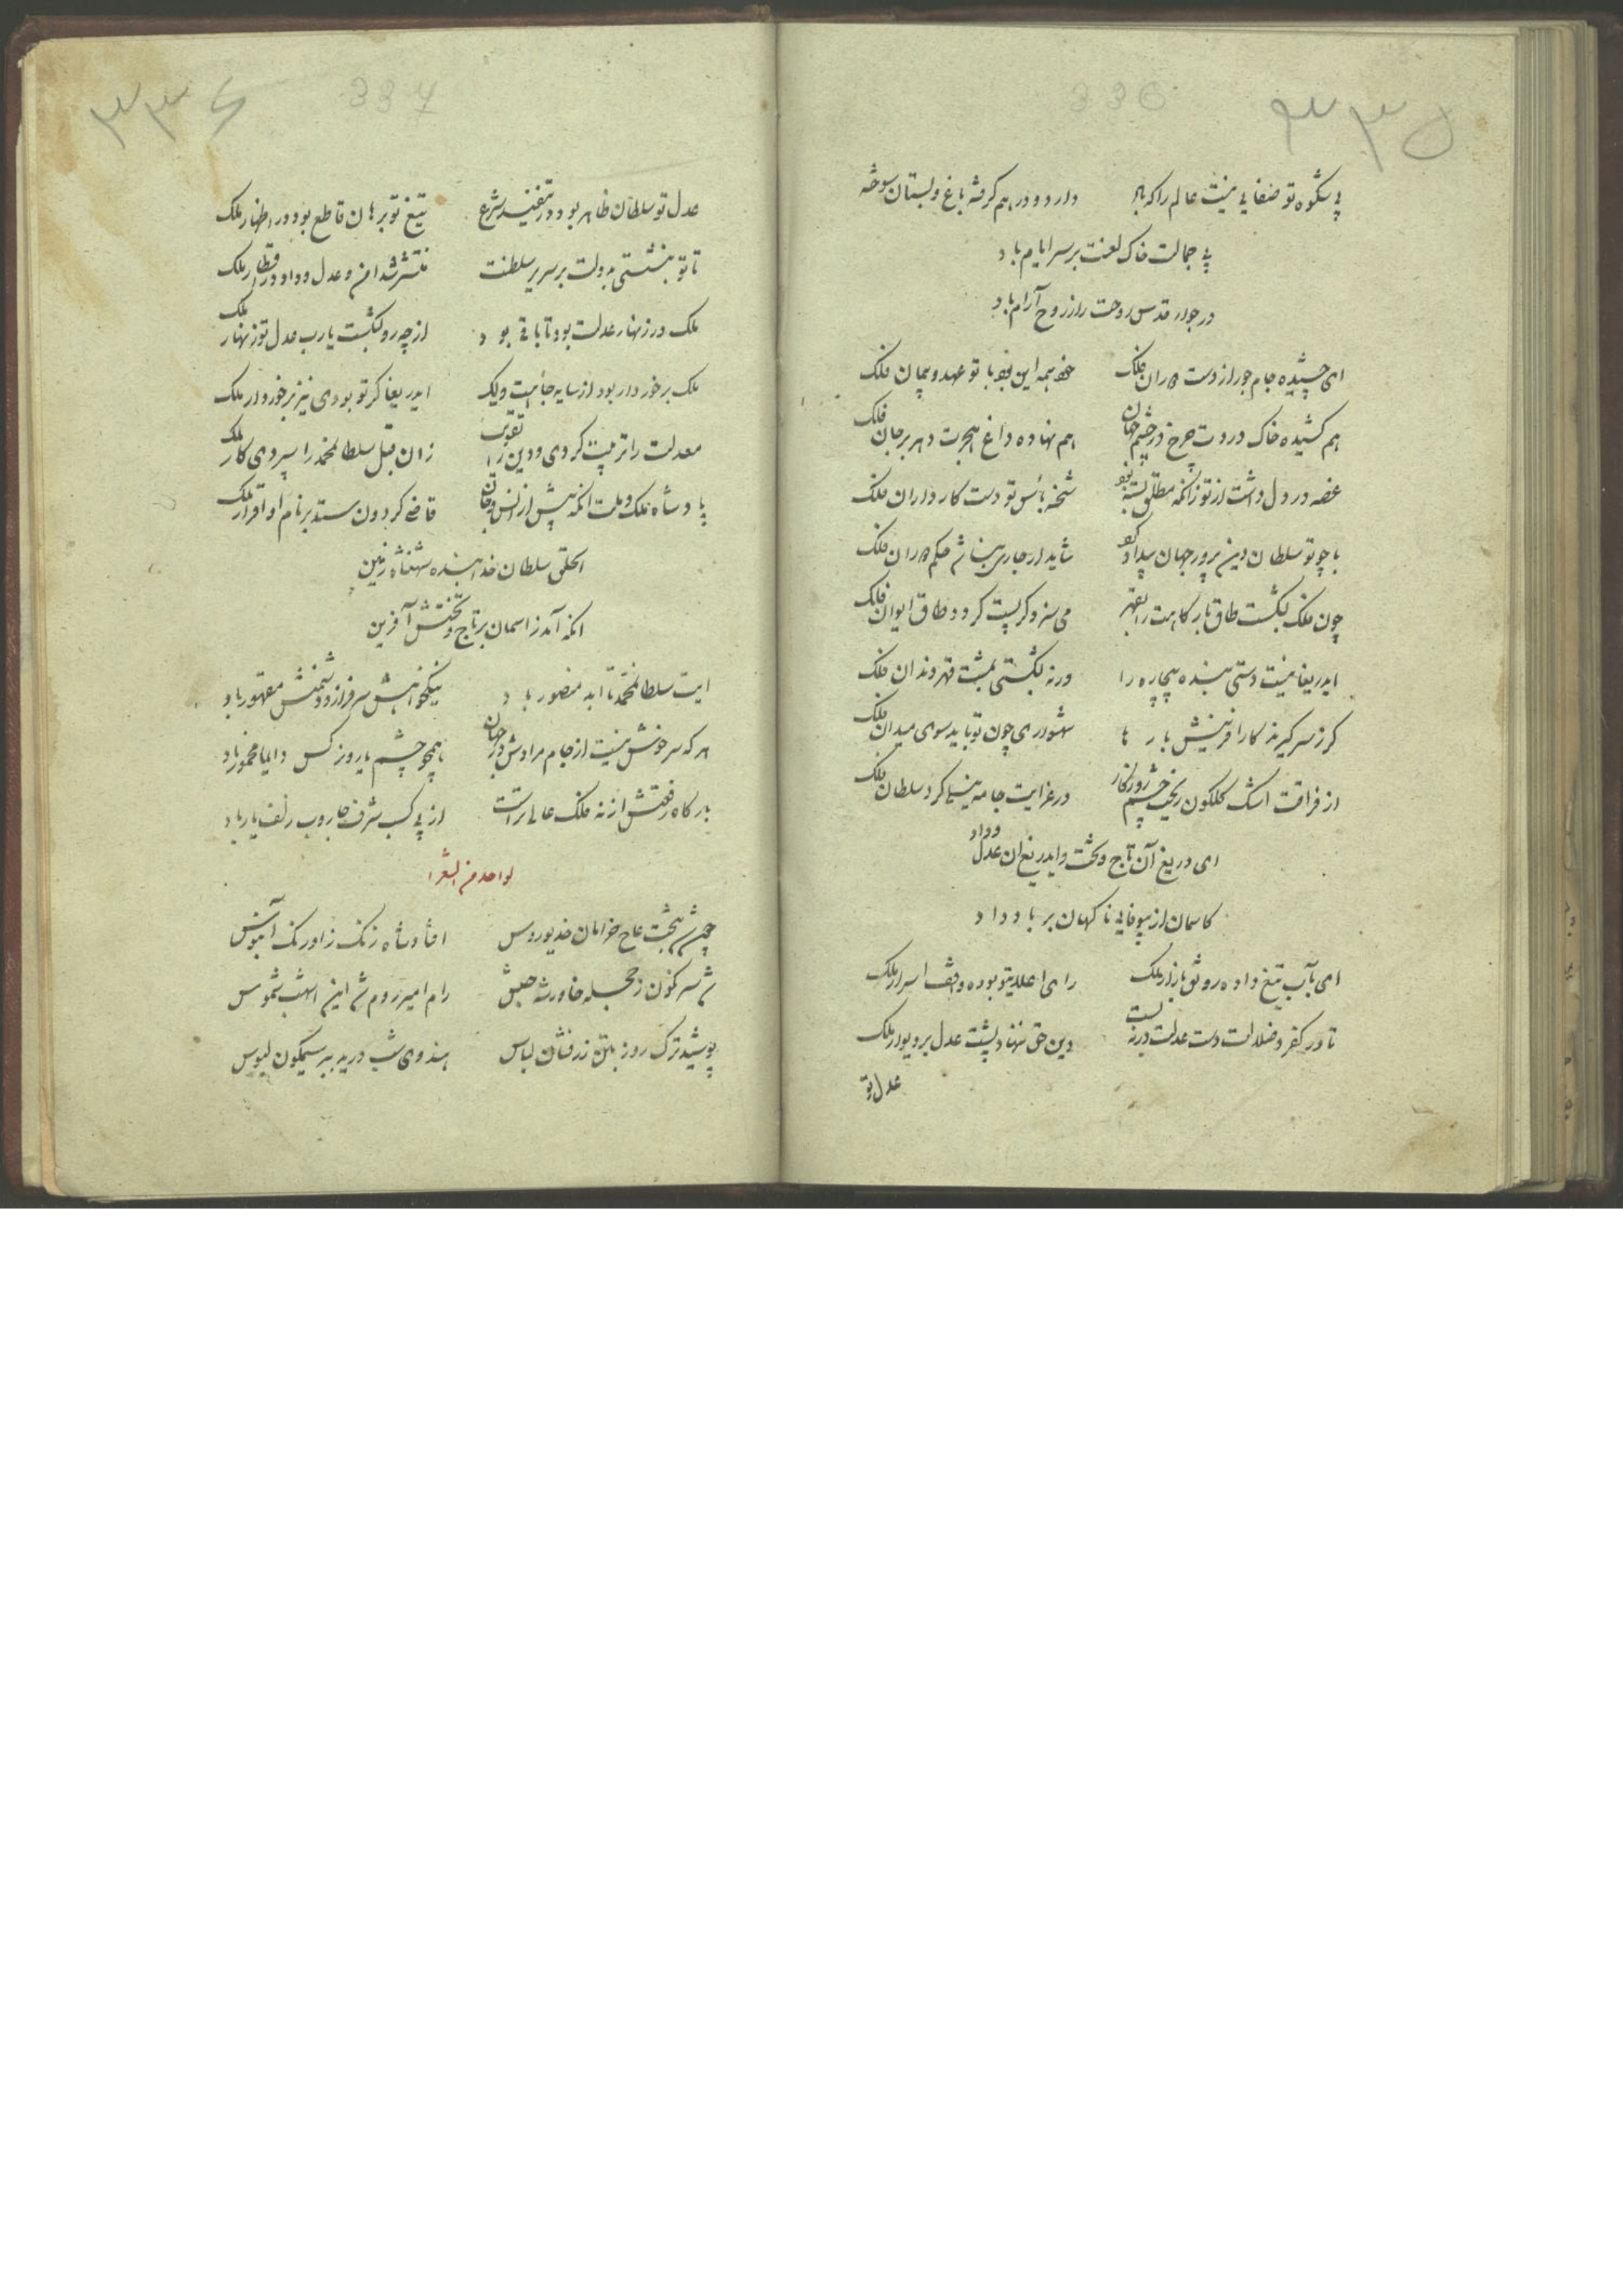 ۳۳۵
336
بی شکوه تو صفایی نیست عالم را که باد دارد و درهم گرفته باغ و بستان سوخته
بی جمالت خاک لعنت بر سر ایام باد
در جوار قدس روحت را ز روح آرام باد
ای چشیده جام جور از دست دوران فلک خود همه این بود با تو عهد و پیمان فلک
هم کشیده خاک دردت چرخ در چشم جهان هم نهاده داغ هجرت دهر بر جان فلک
غصه در دل داشت از تو زانکه مطلق بسته بود شحنه باس تو دست کارداران فلک
با چو تو سلطان دین پرور جهان بیداد کرد شاید ار جاری نباشد حکم دوران فلک
چون فلک بشکست طاق بارگاهت را بقهر می سزد گر پست گردد طاق ایوان فلک
ایدریغا نیست دستی بنده بیچاره را ورنه بشکستی بمشت قهر دندان فلک
گر ز سر گیرند کار آفرینش بارها شهسواری چون تو ناید سوی میدان فلک
از فراقت اشک گلگون ریخت چشم روزگار در عزایت جامه نیلی کرد سلطان فلک
ای دریغ آن تاج و تخت و ایدریغ ان عدل و داد
کاسمان از بیوفایی ناگهان بر باد داد
ای بآب تیغ داده رونق بازار ملک رای اعلای تو بوده واقف اسرار ملک
تا در کفر و ضلالت دست عدلت در نبست دین حق ننهاد پشت عدل بر دیوار ملک
عدل تو
۳۳۶
337
عدل تو سلطان ظاهر بود در تنفیذ شرع تیغ تو برهان قاطع بود در اظهار ملک
تا تو بنشستی بدولت بر سریر سلطنت منتشر شد امن و عدل و داد در اقطار ملک
ملک در زنهار عدلت بود تا باقی بود از چه رو بگشت یارب عدل تو زنهار ملک
ملک برخوردار بود از سایه جاهت ولیک ایدریغا گر تو بودی نیز برخوردار ملک
معدلت را تربیت کردی و دین را تقویت زان قبل سلطان محمد را سپردی کار ملک
پادشاه ملک و ملت انکه پیش از انس و جان قاضی گردون ستد بر نام او اقرار ملک
الحق سلطان خدابنده شهنشاه زمین
انکه آمد ز اسمان بر تاج و تختش آفرین
رایت سلطان محمد تا ابد منصور باد نیکخواهش سرفراز و دشمنش مقهور باد
هر که سرخوش نیست از جام مرادش در جهان همچو چشم یار و نرگس دایما مخمور باد
بارگاه رفعتش از نه فلک عالی تراست از پی کسب شرف جاروب زلف یار باد
لواحد من الشعرا
چون شد بتخت عاج خرامان خدیو روس افتاد شاه زنگ ز اورنگ آبنوس
شد سرنگون ز حجله خاور شه حبش رام امیر روم شد این اشهب شموس
پوشید ترک روز بتن زرفشان لباس هندوی شب درید ببر سیمگون لبوس